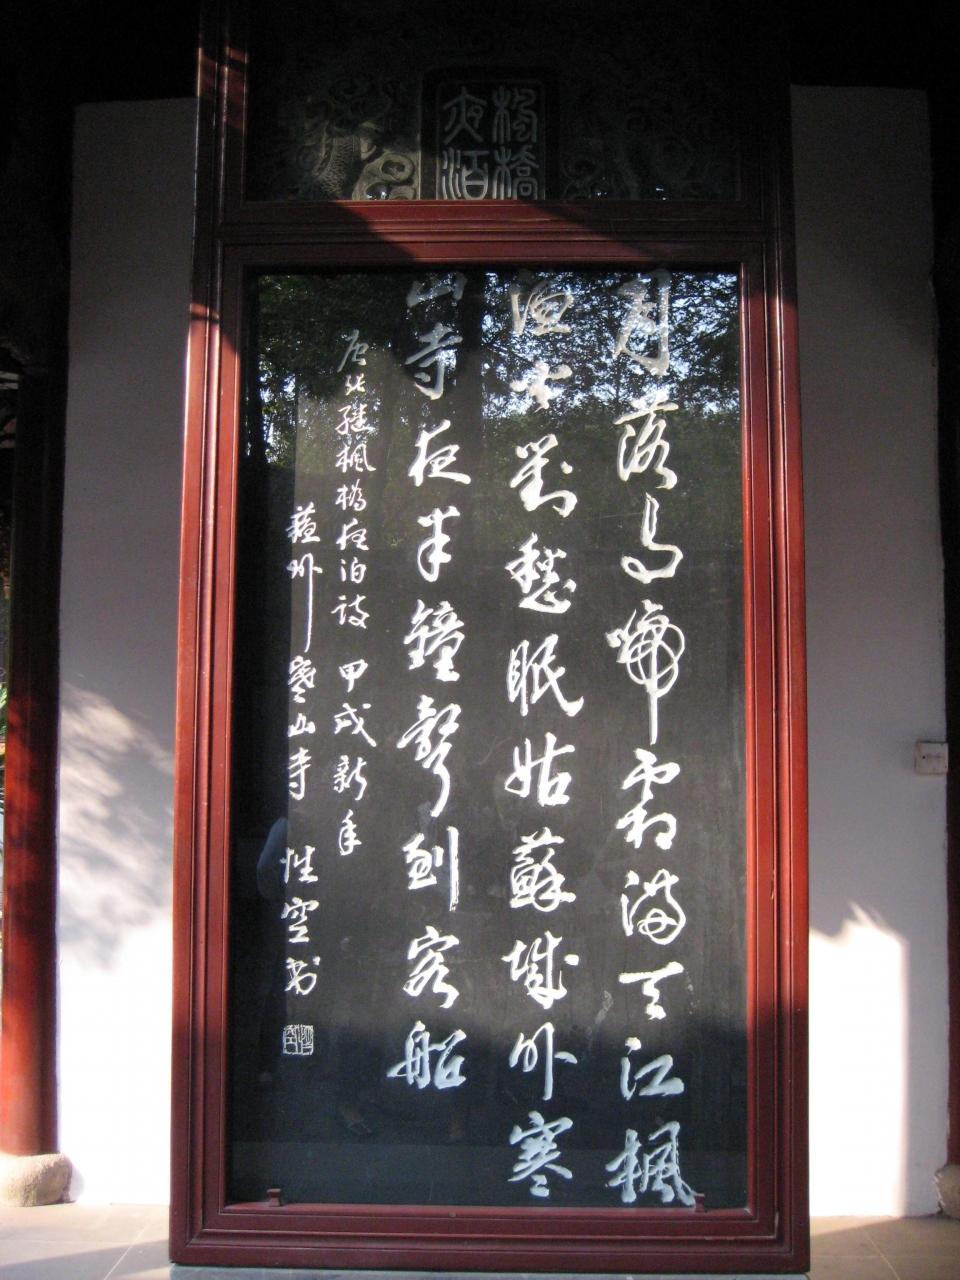 楓橋
夜泊
月落烏啼霜滿天江楓
漁火對愁眠姑蘇城外寒
山寺夜半鐘聲到客船
唐張繼楓橋夜泊詩 甲戌新年
蘇州寒山寺 性空书